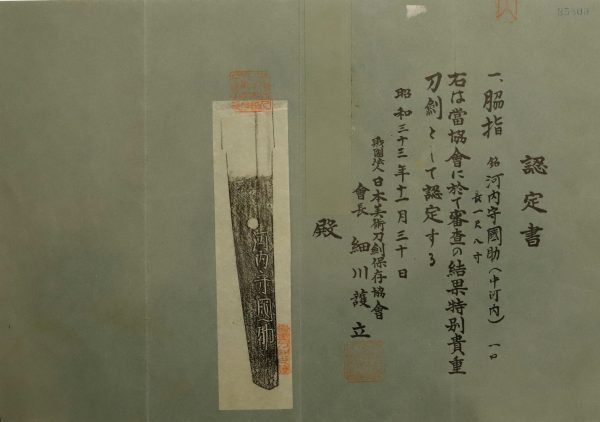 35300
認定書
一、脇指 銘 河内守國助(中河内) 一口
長一尺八寸
右は當協會に於て審査の結果特別貴重
刀剣として認定する
昭和三十三年十一月三十日
財團法人日本美術刀剣保存協會
會長 細川護立
殿
河内守國助